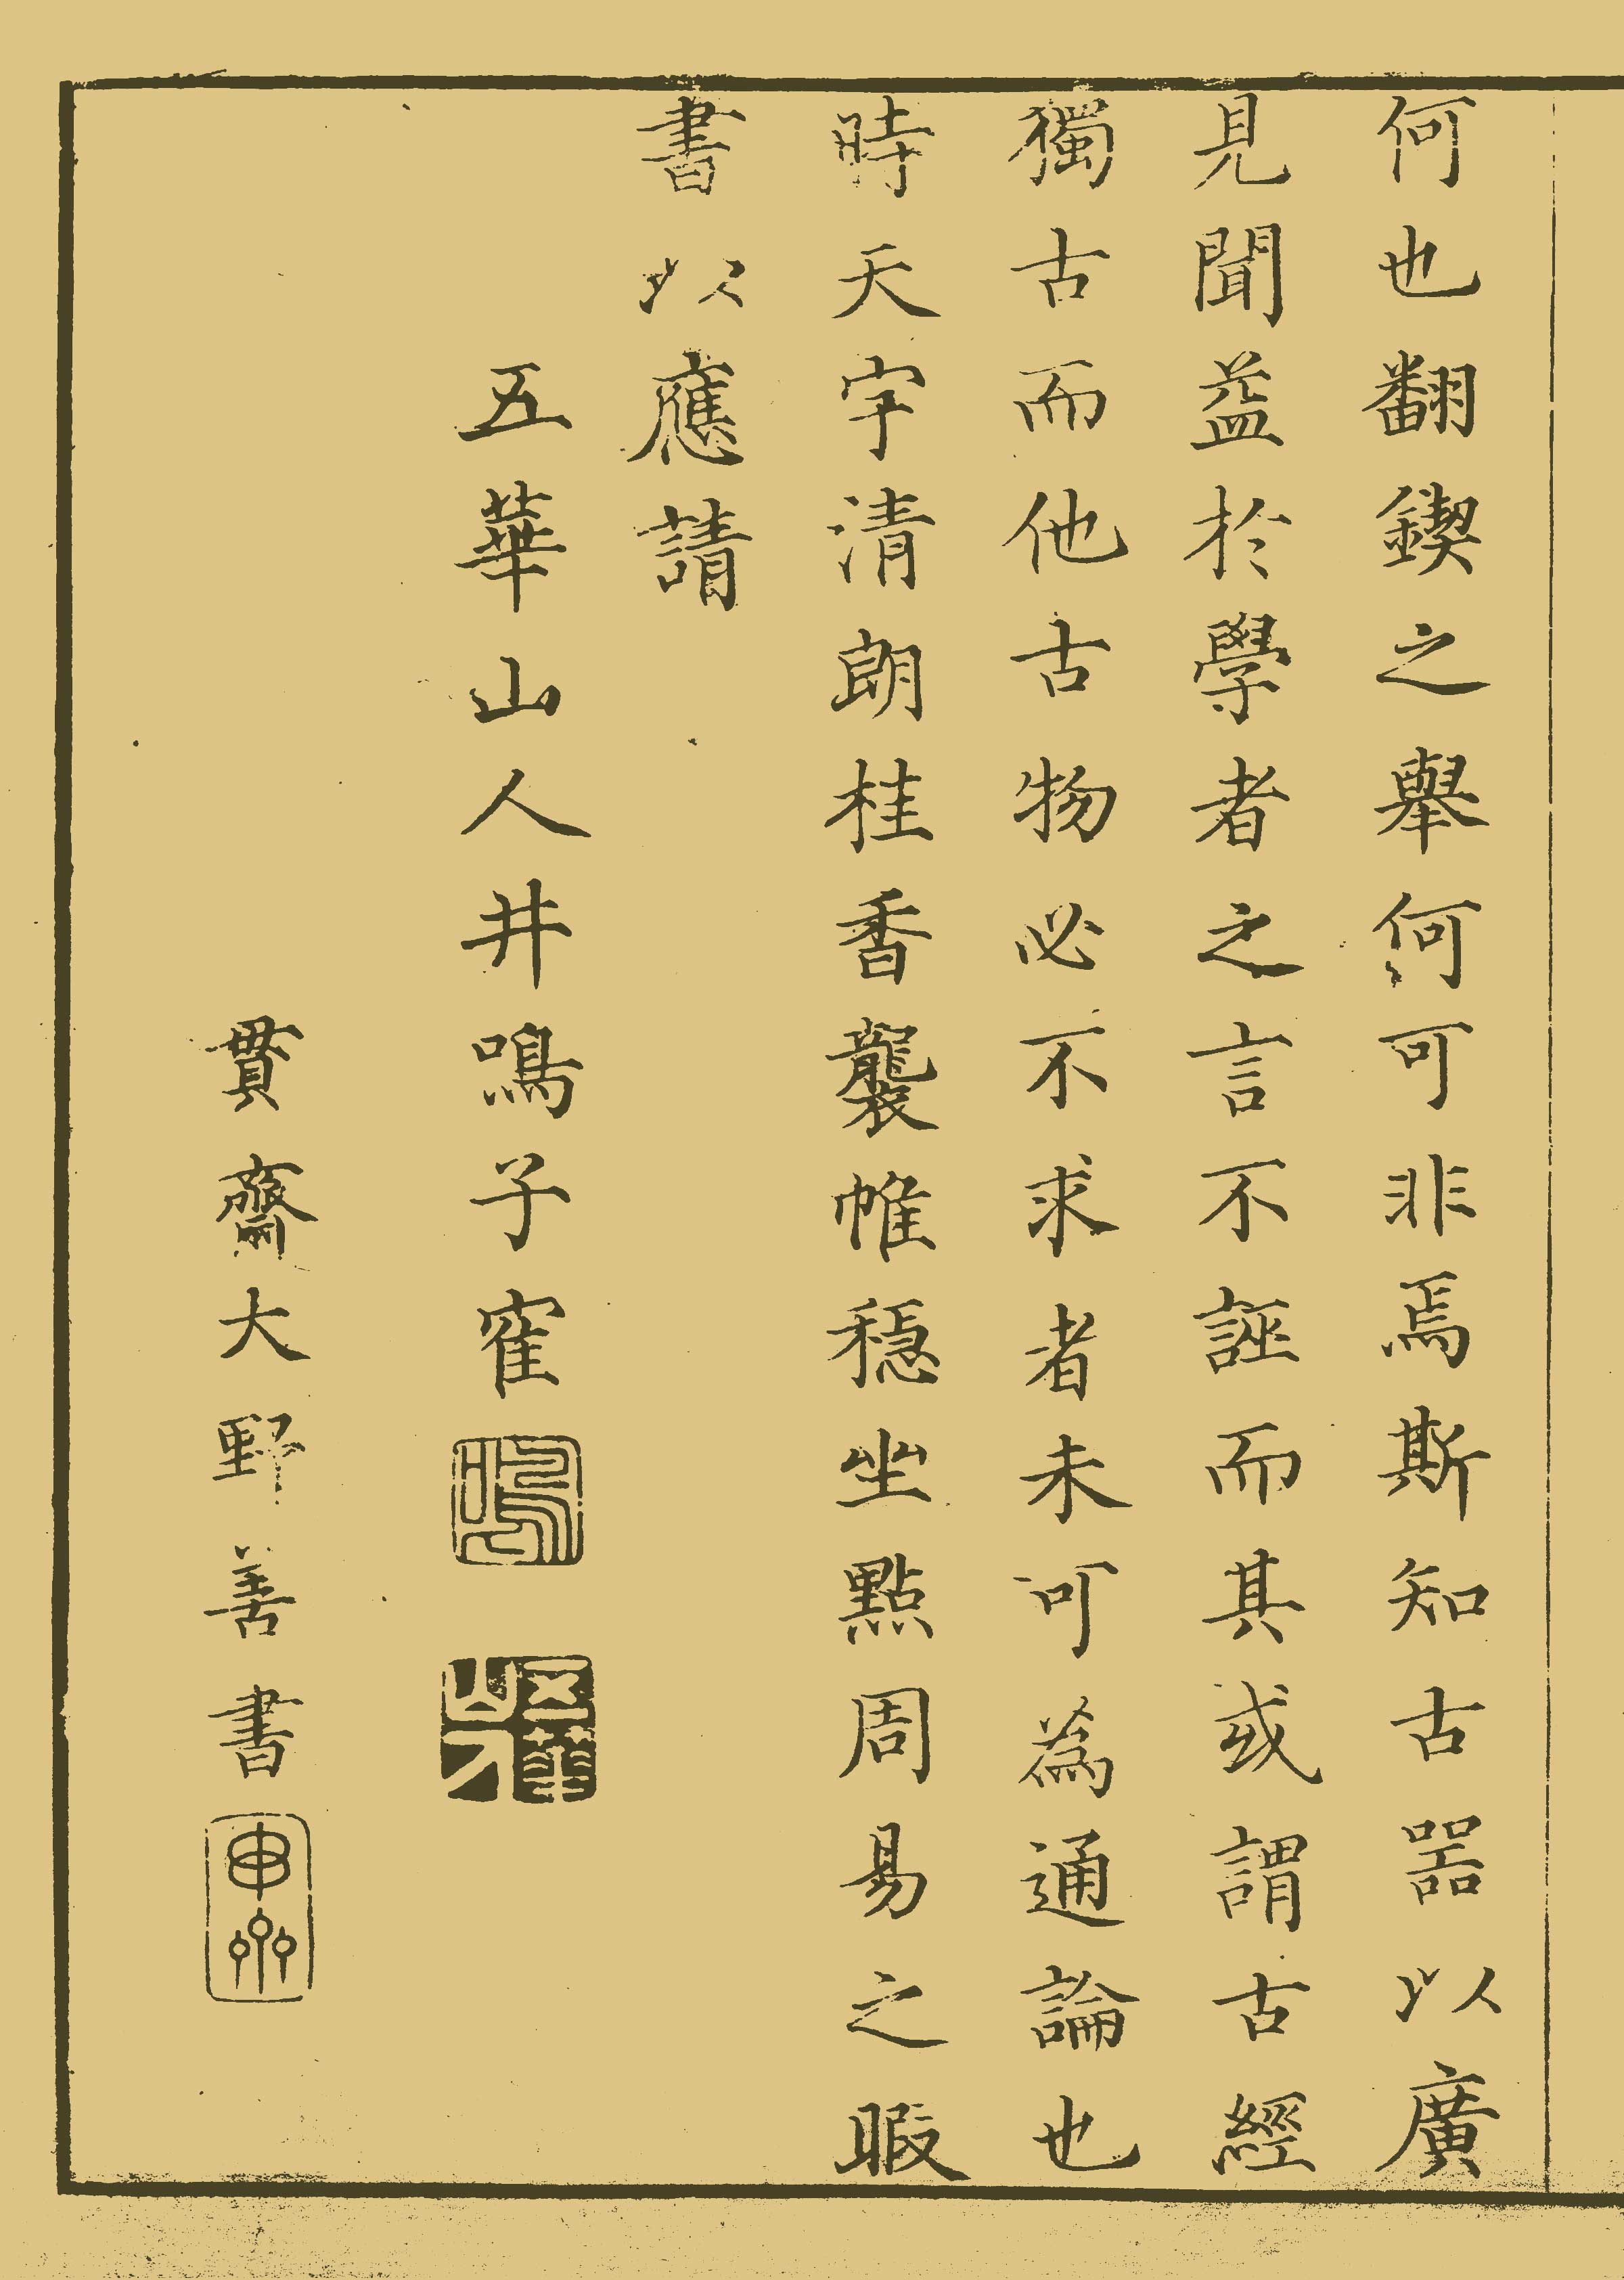 何也翻鍥之舉何可非焉斯知古器以廣
見聞益於學者之言不誣而其或謂古經
獨古而他古物必不求者未可為通論也
時天宇清朗桂香襲帷穏坐點周易之暇
書以應請
五華山人井鳴子寉
鳴
五華山人
貫齋大野善書